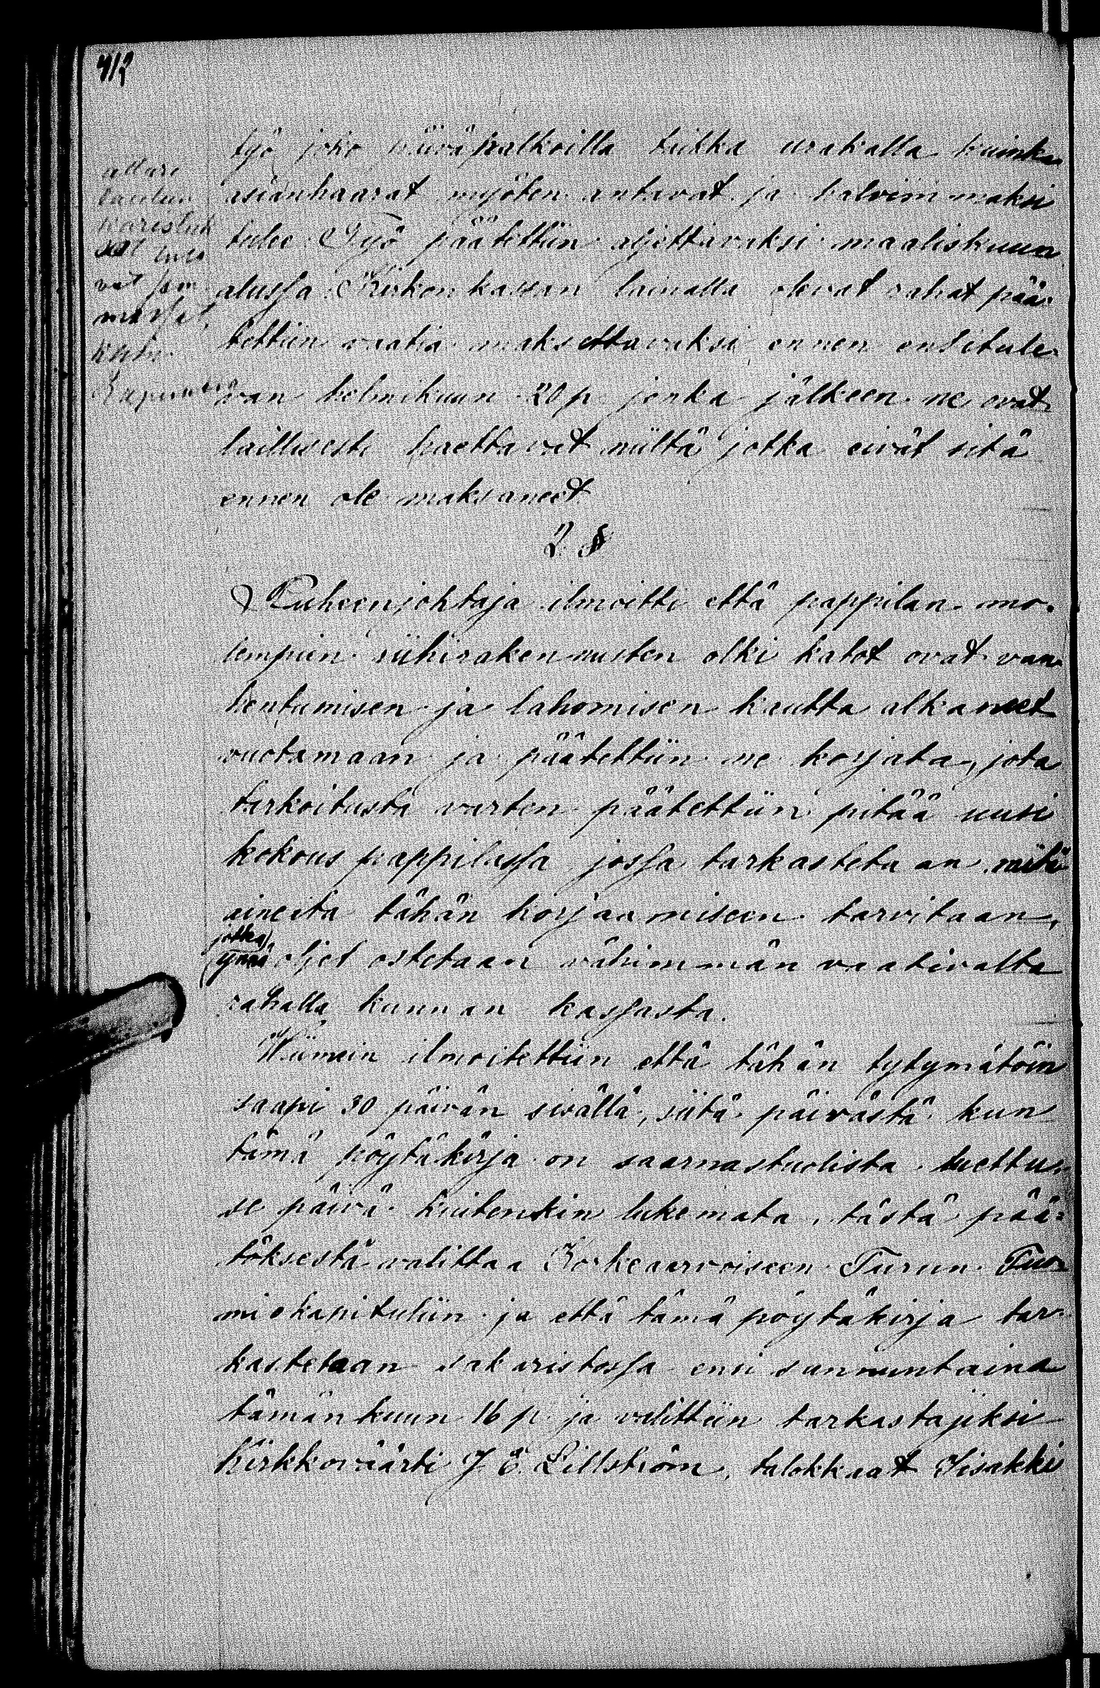 412
työ joko päiväpalkoilla taikka urakalla kuinka
asianhaarat myöten antavat ja halvimmaksi
tulee. Työ päätettiin aljettavaksi maaliskuun
alussa. Kirkon kassan lainalla olevat rahat pää-
tettiin vaatia maksettavaksi ennen ensitule-
van helmikuun 20 p. jonka jälkeen ne ovat
laillisesti haettavat niiltä jotka eivät sitä
ennen ole maksaneet.
2 §
Puheenjohtaja ilmoitti että pappilan mo-
lempien riihirakennusten olki katot ovat van-
hentumisen ja lahomisen kautta alkaneet
vuotamaan ja päätettiin ne korjata, jota
tarkoitusta varten päätettiin pitää uusi
kokous pappilassa jossa tarkastetaan mitä
aineita tähän korjaamiseen tarvitaan,
jotka
ynnä oljet ostetaan vähimmän vaativalta
rahalla kunnan kassasta.
Wiimein ilmoitettiin että tähän tytymätöin
saapi 30 päivän sisällä, siitä päivästä kun
tämä pöytäkirja on saarnastuolista luettu,
se päivä kuitenkin lukemata, tästä pää-
töksestä valittaa Korkeaarvoiseen Turun Tuo-
miokapituliin ja että tämä pöytäkirja tar-
kastetaan sakaristossa ensi sunnuntaina
tämänkuun 16 p. ja valittiin tarkastajiksi
Kirkkoväärti J. E. Lillström, talokkaat Iisakki
altari